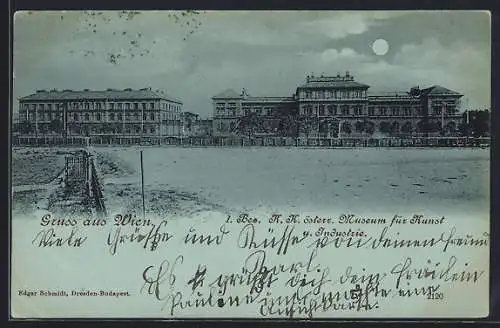 Gruss aus Wien
I. Bez. K. K. österr. Museum für Kunst
u. Industrie.
Viele Grüße und Küsse von deinen
Karl.
Es grüßt dich dein Fräulein
Pauline und
Edgar Schmidt, Dresden-Budapest.
2120